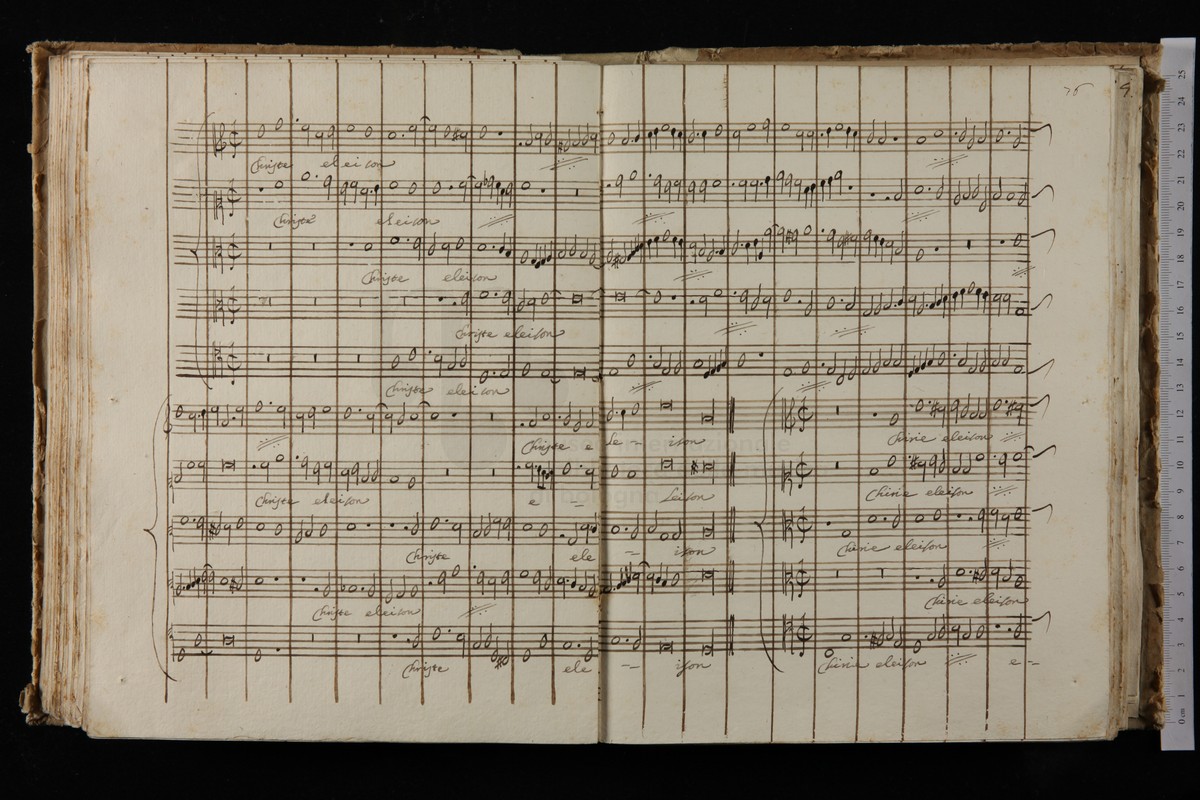 76 9.
Christe eleison
Christe eleison
Christe eleison
Christe eleison
Christe eleison
Christe e le - ison Chirie eleison
Christe eleison e - Leison Chirie eleison
Christe ele - ison Chirie eleison
Christe eleison Chirie eleison
Christe ele - ison Chirie eleison e -
0 cm 1 2 3 4 5 6 7 8 9 10 11 12 13 14 15 16 17 18 19 20 21 22 23 24 25